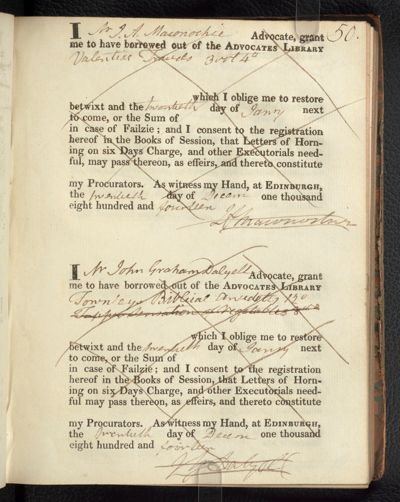 50.
I Mr J. A. Maconochie Advocate, grant
me to have borrowed out of the ADVOCATES LIBRARY
3 vol 4o
which I oblige me to restore
betwixt and the twentieth day of Janry next
to come, or the Sum of
in case of Failzie; and I consent to the registration
hereof in the Books of Session, that Letters of Horn-
ing on six Days Charge, and other Executorials need-
ful, may pass thereon, as effeirs, and thereto constitute
my Procurators. As witness my Hand, at EDINBURGH,
the twentieth day of Decem one thousand
eight hundred and fourteen
Maconochie
I Mr John Graham Dalyell Advocate, grant
me to have borrowed out of the ADVOCATES LIBRARY
Biblical
which I oblige me to restore
betwixt and the twentieth day of Janry next
to come, or the Sum of
in case of Failzie; and I consent to the registration
hereof in the Books of Session, that Letters of Horn-
ing on six Days Charge, and other Executorials need-
ful may pass thereon, as effeirs, and thereto constitute
my Procurators. As witness my Hand, at EDINBURGH,
the twentieth day of Decem one thousand
eight hundred and fourteen
Dalyell